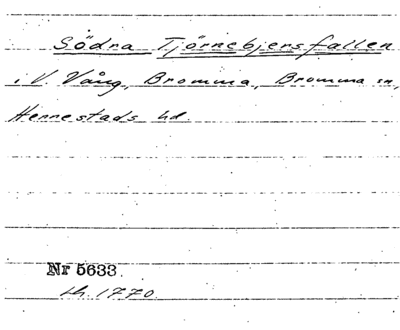 Södra Tjörnebjersfallen
i V. Vång, Bromma, Bromma sn,
Hennestads hd.
Nr 5633.
lh. 1770